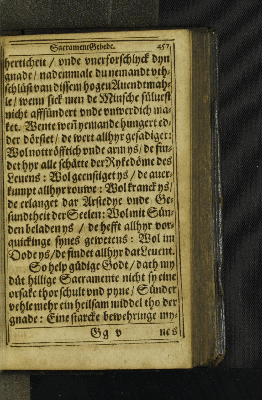 SacramentGebede. 457
herticheit / vnde vnerforschlyck dyn
gnade / nademmale du nemandt vth-
schlüst van dissem hogen Auendtmah-
le / wenn sick men de Minsche süluest
nicht affsündert vnde vnwerdich ma-
ket. Wente weñ yemande hungert ed-
der dörstet / de wert allhyr gesadiget:
Wol nottröfftich vnde arm ys / de fin-
det hyr alle schätte der Rykedöme des
Leuens: Wol geengstiget ys / de auer-
kumpt allhyr rouwe: Wol kranck ys /
de erlanget dar Arstedye vnde Ge-
sundtheit der Seelen: Wol mit Sün-
den beladen ys / de hefft allhyr vor-
quickinge synes gewetens: Wol im
Dode ys / de findet allhyr dat Leuent.
So help güdige Godt / dath my
düt hillige Sacramente nicht sy eine
orsake thor schult vnd pyne / Sünder
vehle mehr ein heilsam middel tho der
gnade: Eine starcke bewehringe my-
Gg v nes